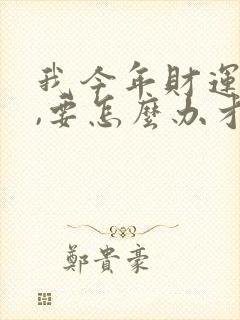 我今年財運
,要怎麼办才
鄭貴豪